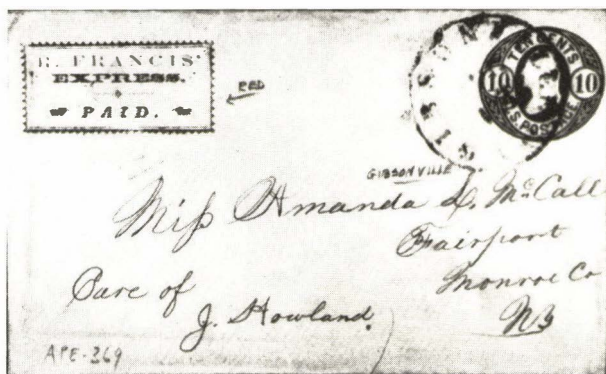 R. FRANCIS'
EXPRESS.
PAID.
RED
TEN CENTS
10 10
U.S. POSTAGE
GIBSONVILLE
Miss Amanda L. McCall
Fairport
Monroe Co
NY
Care of
J. Howland.
APE-369